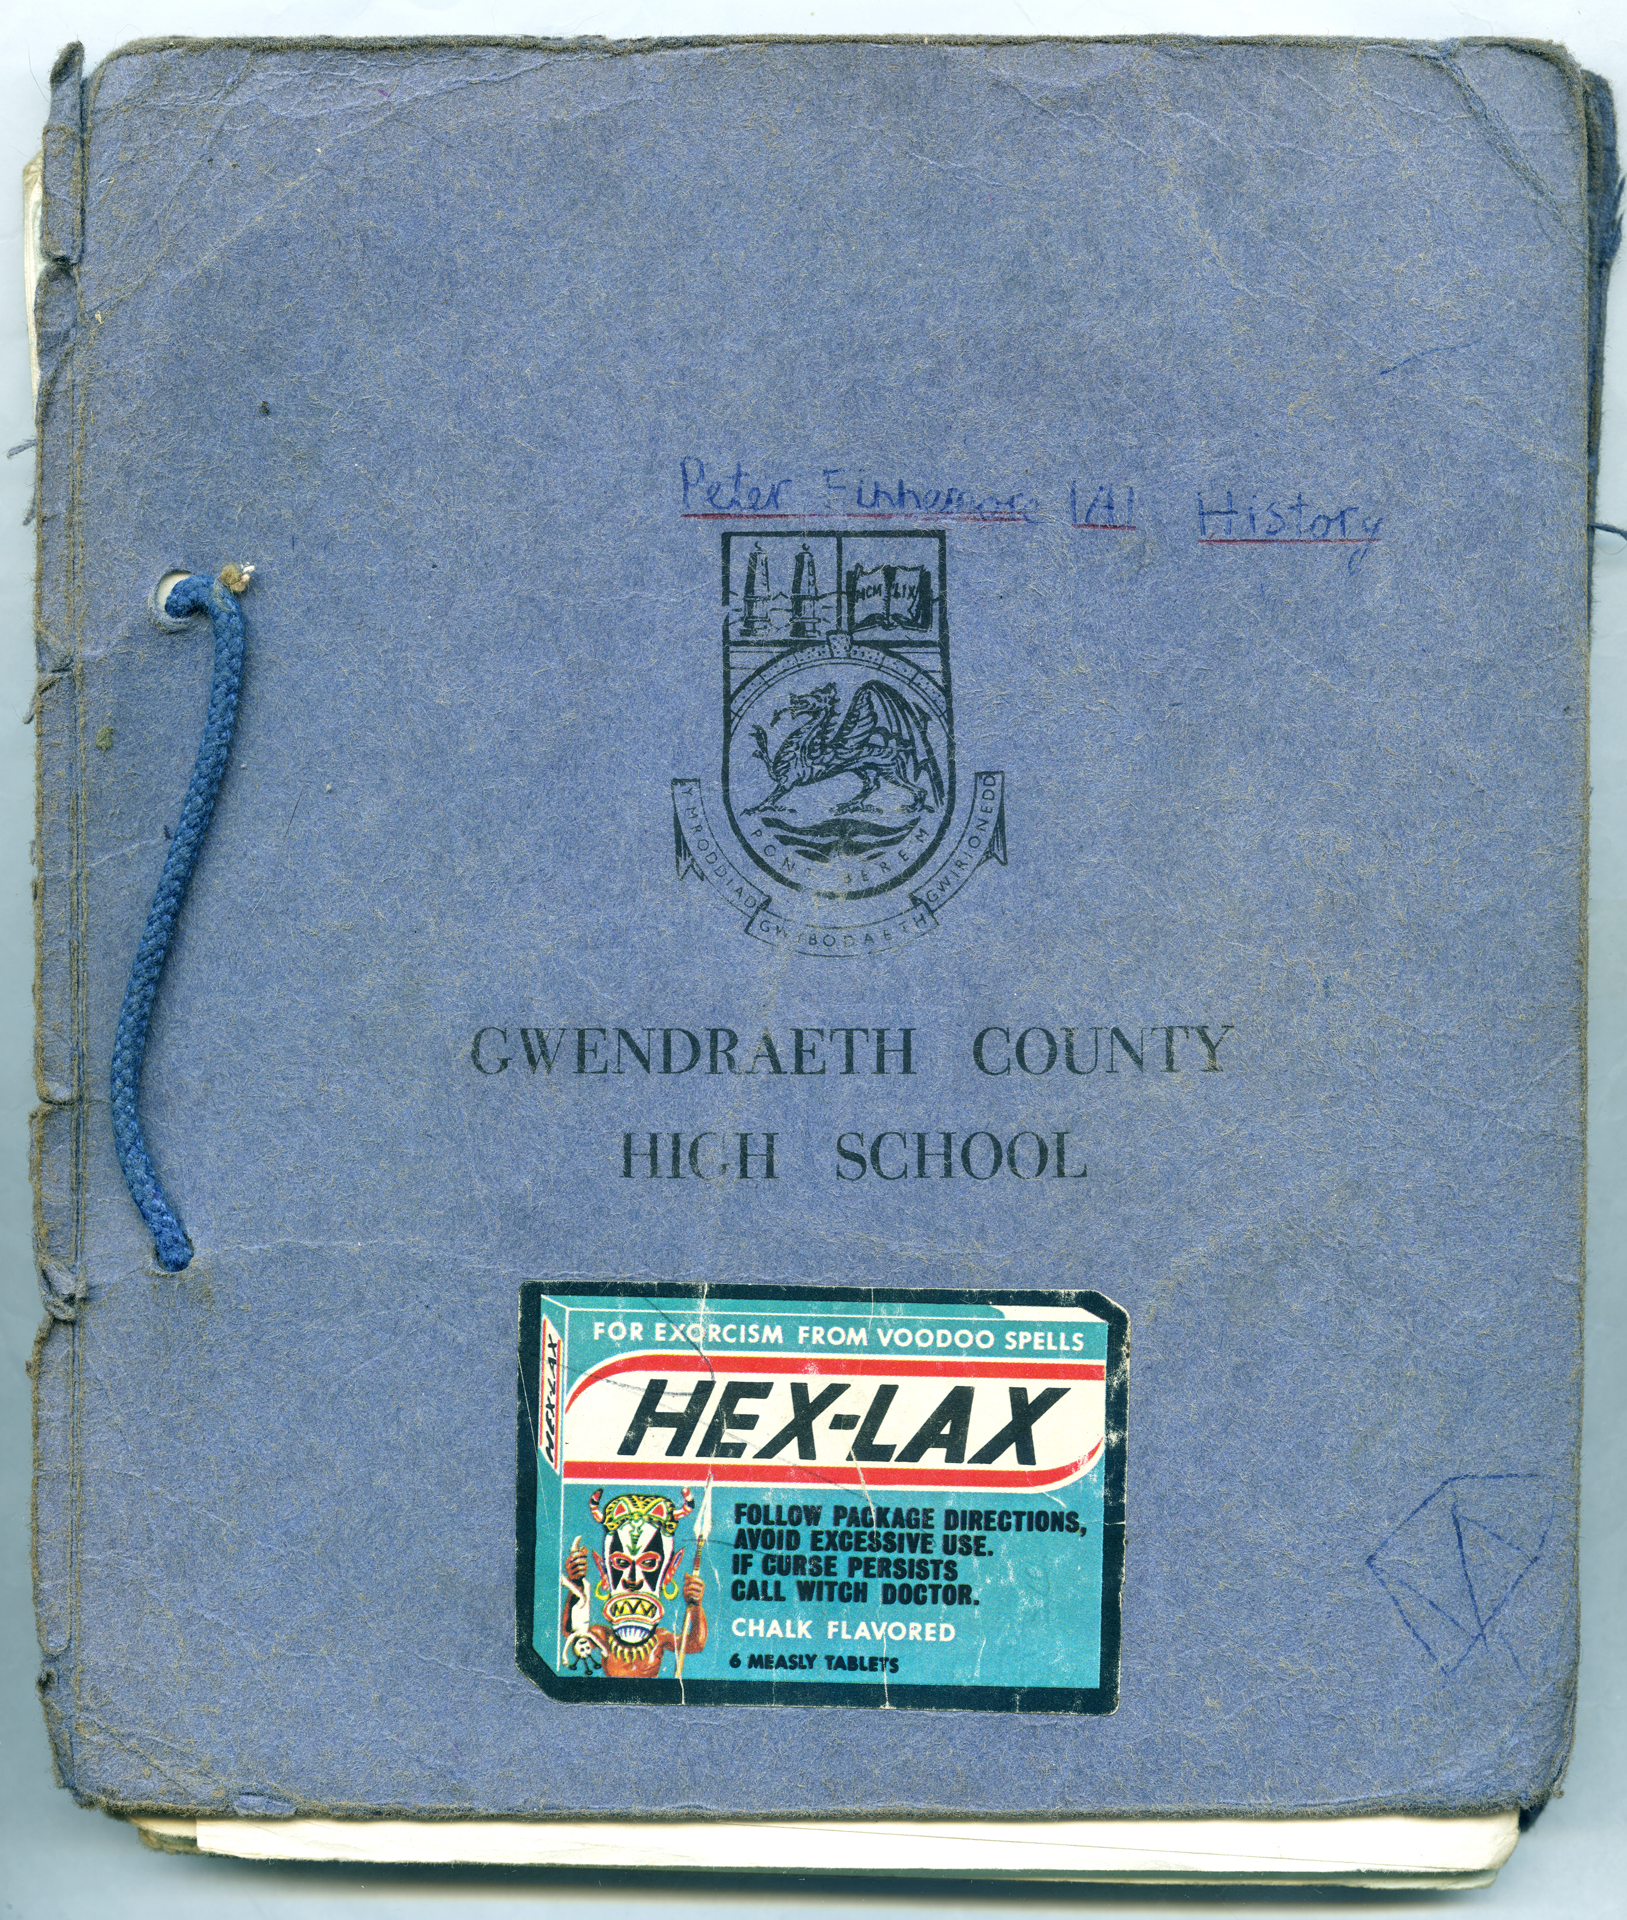 Peter Finnemore 1A1 History
MCM LIX
PONTYBEREM
YMRODDIAD GWYBODAETH GWIRIONEDD
GWENDRAETH COUNTY
HIGH SCHOOL
HEX-LAX
FOR EXORCISM FROM VOODOO SPELLS
HEX-LAX
FOLLOW PACKAGE DIRECTIONS,
AVOID EXCESSIVE USE.
IF CURSE PERSISTS
CALL WITCH DOCTOR.
CHALK FLAVORED
6 MEASLY TABLETS